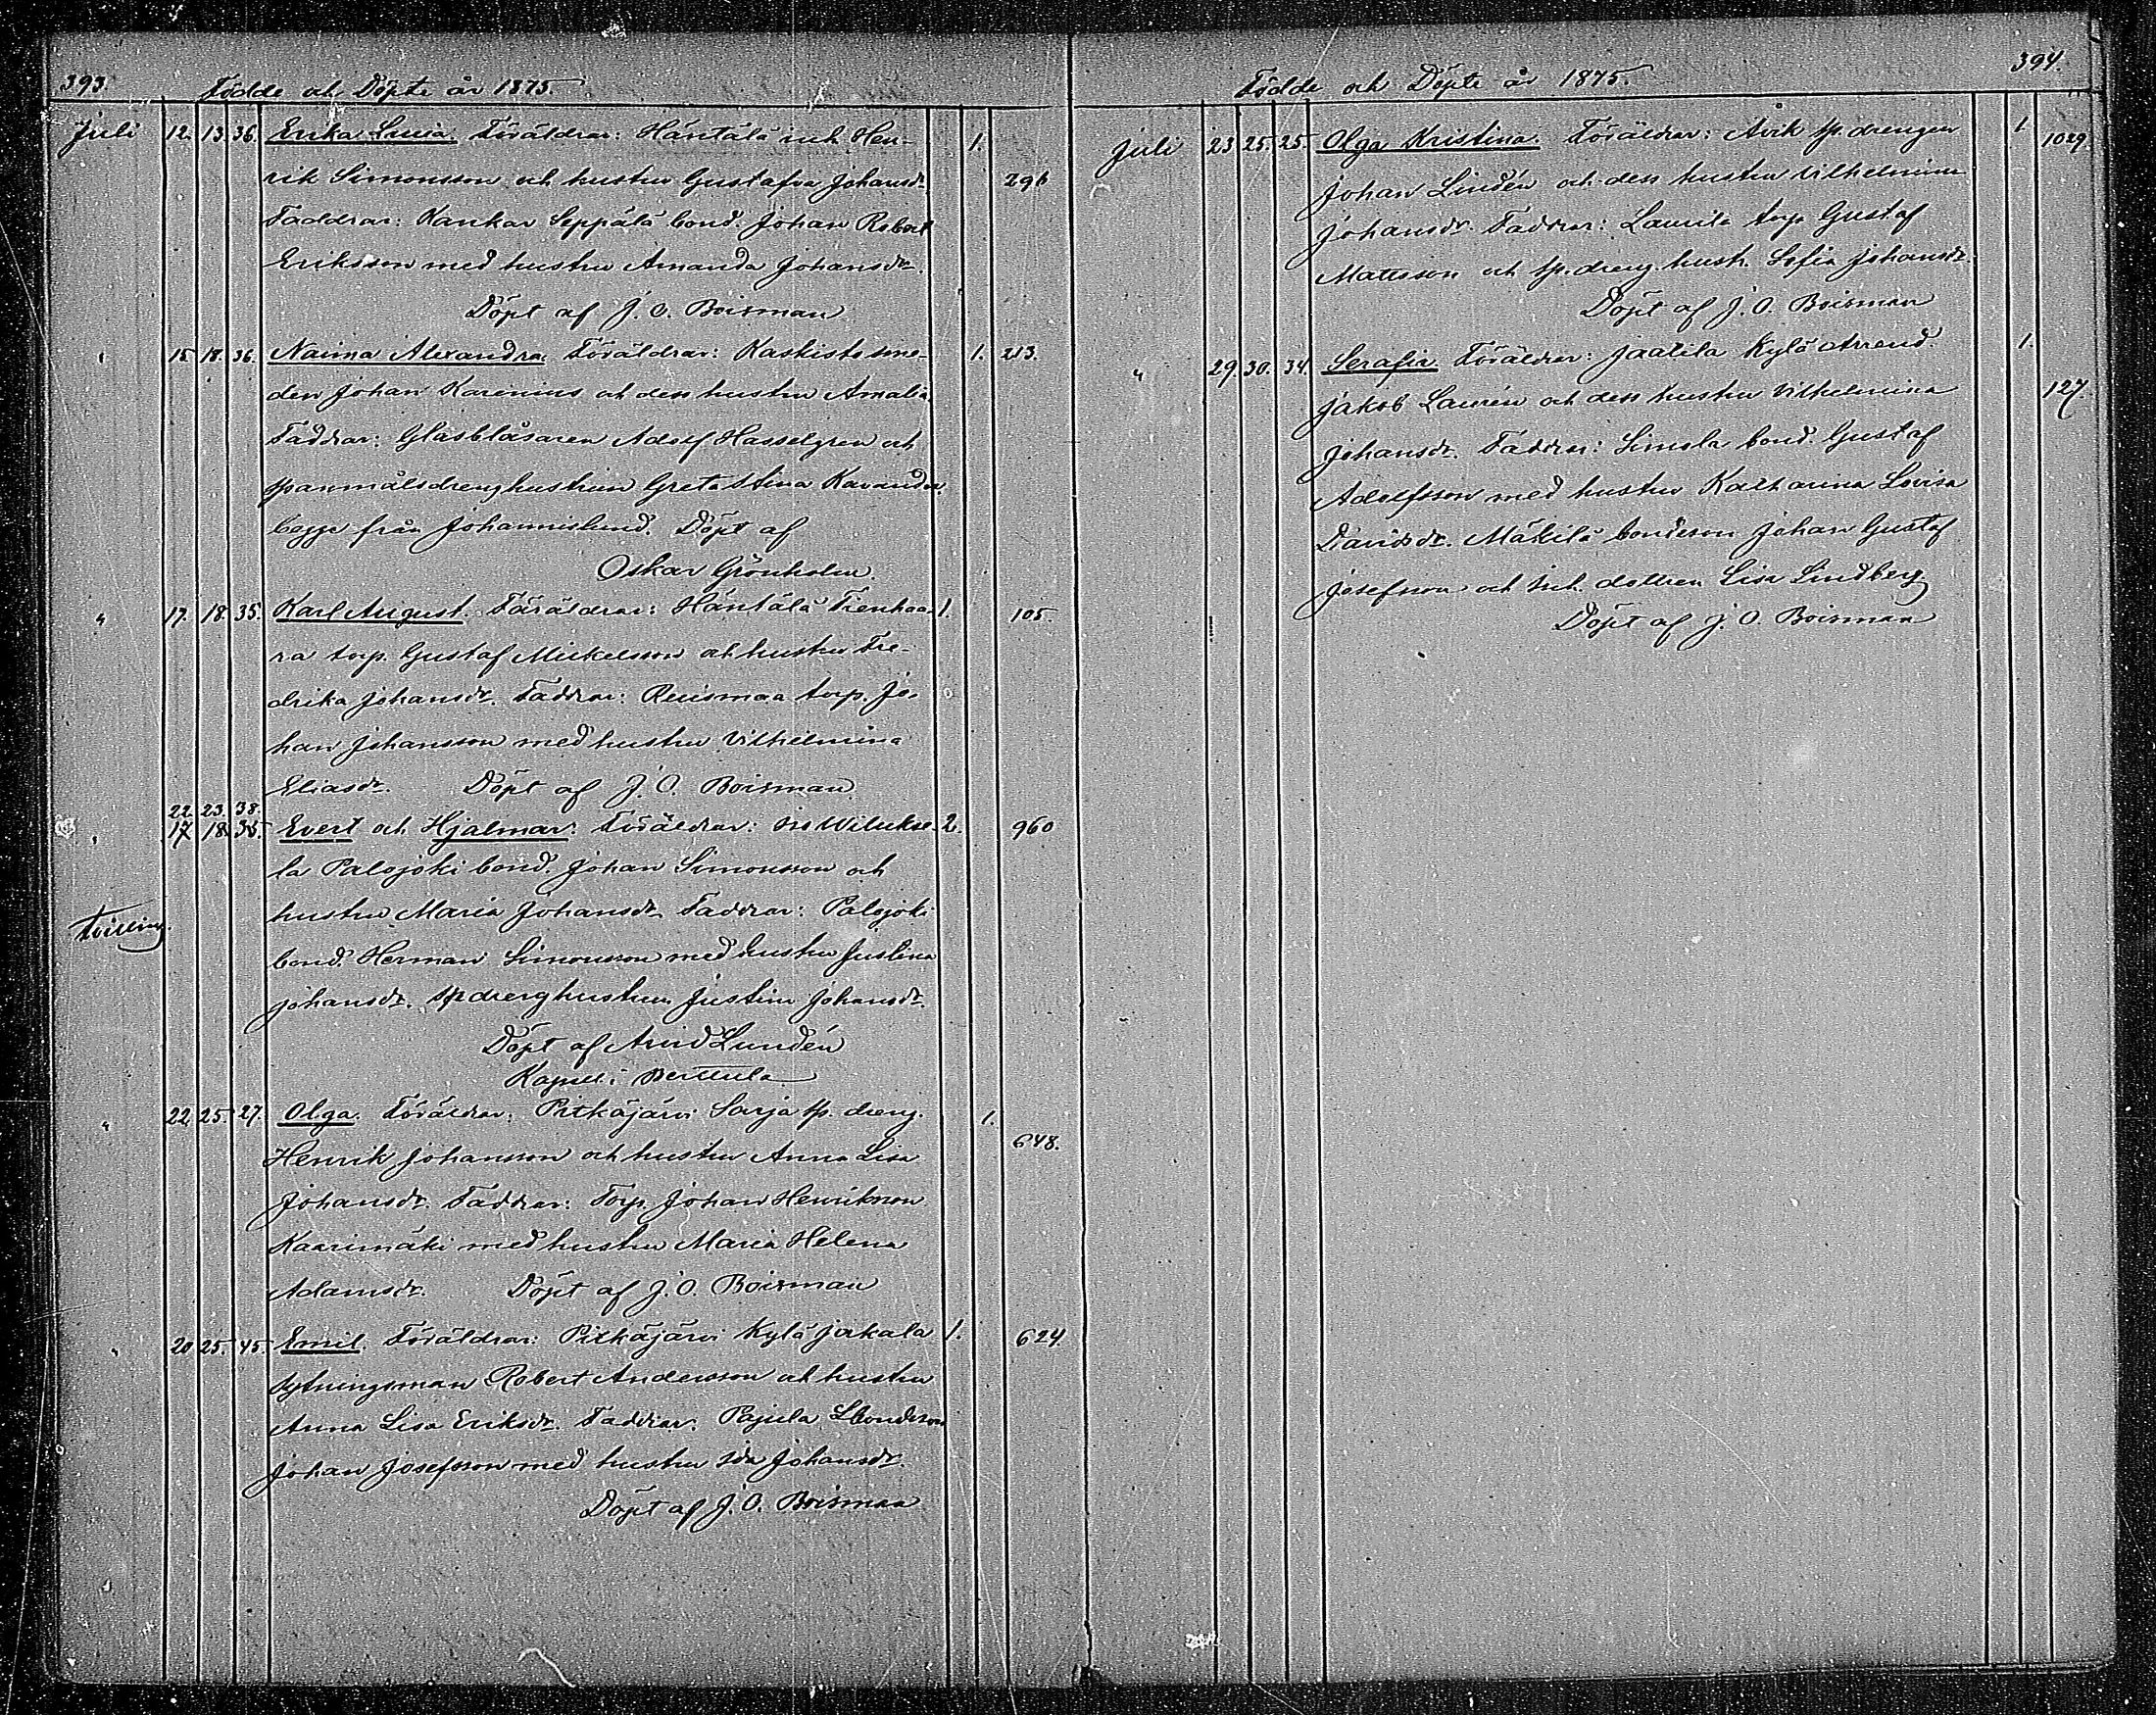 393.
Födde och Döpte år 1875.
Juli 12. 13. 36. Erika Lusia. Föräldrar: Häntälä inh. Hen- 1.
rik Simonsson och hustru Gustafva Johansdr. 296
Faddrar: Kankar Seppälä bond. Johan Robert
Eriksson med hustru Amanda Johansdr.
Döpt af J. O. Boisman
" 15. 18. 36. Naima Alexandra. Föräldrar: Kaskisto sme- 1. 213.
den Johan Karenius och dess hustru Amalia.
Faddrar: Glasblåsaren Adolf Hasselgren och
spanmålsdrenghustrun Greta Stina Kavander.
begge från Johannislund. Döpt af
Oskar Grönholm.
" 17. 18. 35. Karl August. Föräldrar: Häntälä Tienhaa- 1. 105.
ra torp. Gustaf Mickelsson och hustru Fre-
drika Johansdr. Faddrar: Ruismaa torp. Jo-
han Johansson med hustru Vilhelmina
Eliasdr. Döpt af J. O. Boisman
22. 23. 38.
" 17. 18. 35. Evert och Hjalmar. Föräldrar: Iso Wilukse- 2. 960
la Palojoki bond. Johan Simonsson och
hustru Maria Johansdr. Faddrar: Palojoki
Tvilling.
bond. Herman Simonsson med hustru Justina
Johansdr. sp. drenghustrun Justina Johansdr.
Döpt af Arvid Lundén
Kapell. i Berttula
" 22. 25. 27. Olga. Föräldrar: Pitkäjärvi Sarja sp. dreng. 1.
Henrik Johansson och hustru Anna Lisa 648.
Johansdr. Faddrar: Torp. Johan Henriksson
Kaarimäki med hustru Maria Helena
Adamsdr. Döpt af J. O. Boisman
" 20. 25. 45. Emil. Föräldrar: Pitkäjärvi Kylä Jaakala 1. 624.
sytningsman Robert Andersson och hustru
Anna Lisa Eriksdr. Faddrar: Pajula bondeson
Johan Josefsson med hustru Ida Johansdr.
Döpt af J. O. Boisman
394.
Födde och Döpte år 1875.
Juli 23. 25. 25. Olga Kristina. Föräldrar: Avik sp. drengen 1. 1029.
Johan Lindén och dess hustru Vilhelmina
Johansdr. Faddrar: Laurila torp. Gustaf
Mattsson och sp. dreng. hustr. Sofia Johansdr.
Döpt af J. O. Boisman
" 29. 30. 34. Serafia. Föräldrar: Jaatila Kylä Arrend. 1.
Jakob Laurén och dess hustru Vilhelmina 127.
Johansdr. Faddrar: Simola bond. Gustaf
Adolfsson med hustru Katharina Lovisa
Davidsdr. Mäkilä bondeson Johan Gustaf
Josefsson och inh. dottren Lisa Lindberg
Döpt af J. O. Boisman